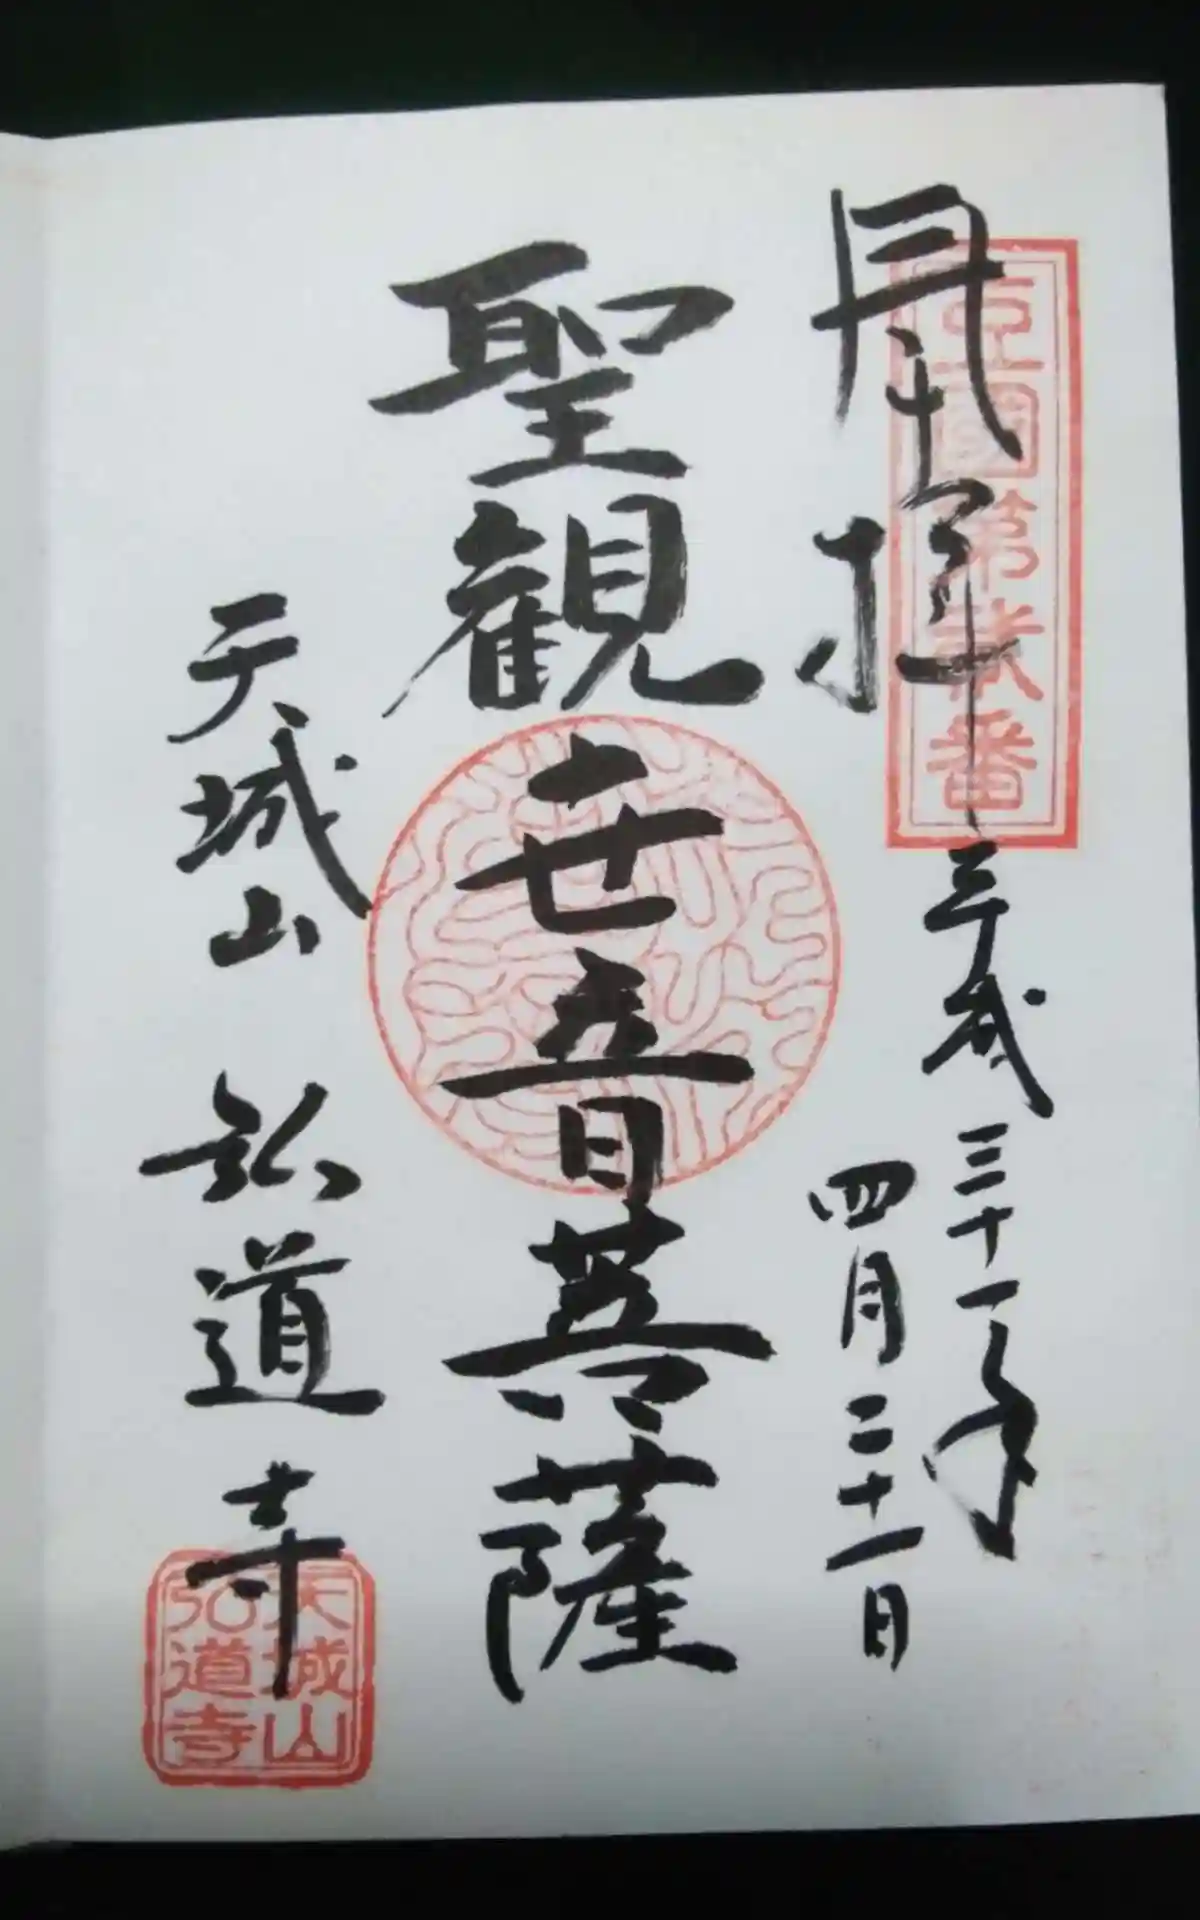 奉拝
豆国第弐番
平成三十一年
四月二十一日
聖観世音菩薩
天城山 弘道寺
天城山
弘道寺